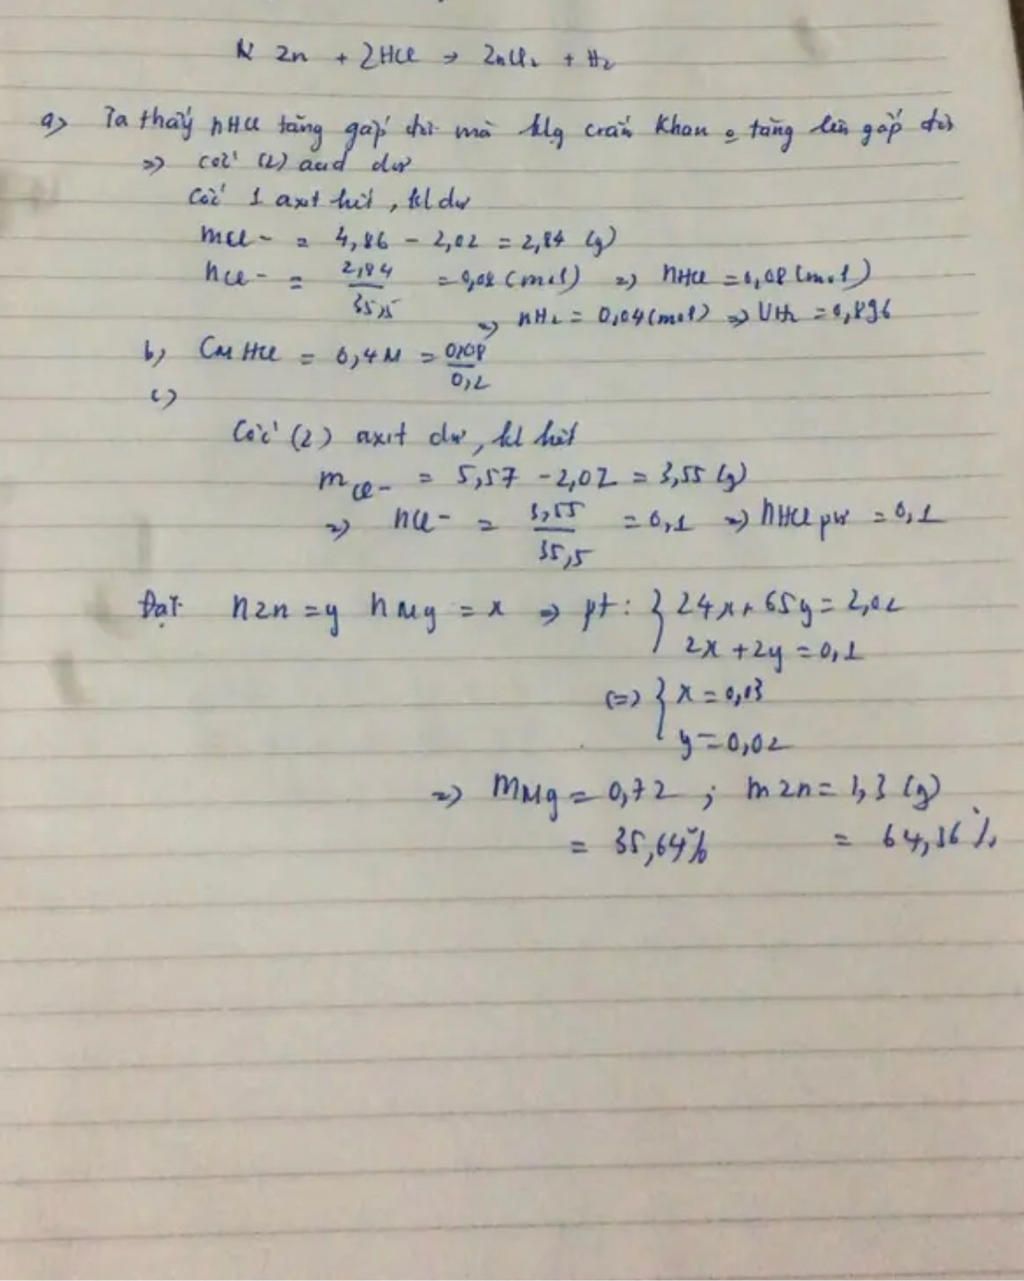 Zn + 2HCl → ZnCl₂ + H₂
a> Ta thấy nHCl tăng gấp đôi mà klg crắn khan o tăng lên gấp đôi
=> cốc (2) acid dư
Cốc 1 axit hết, kl dư
mCl- = 4,86 - 2,02 = 2,84 (g)
nCl- = 2,84/35,5 = 0,08 (mol) => nHCl = 0,08 (mol)
=> nH₂ = 0,04 (mol) => VH₂ = 0,896
b, CM HCl = 0,4M = 0,08/0,2
c>
Cốc (2) axit dư, kl hết
mCl- = 5,57 - 2,02 = 3,55 (g)
=> nCl- = 3,55/35,5 = 0,1 => nHCl pư = 0,1
Đặt nZn = y nMg = x => pt: { 24x + 65y = 2,02
2x + 2y = 0,1
(=) { x = 0,03
y = 0,02
=> mMg = 0,72 ; mZn = 1,3 (g)
= 35,64% = 64,36%